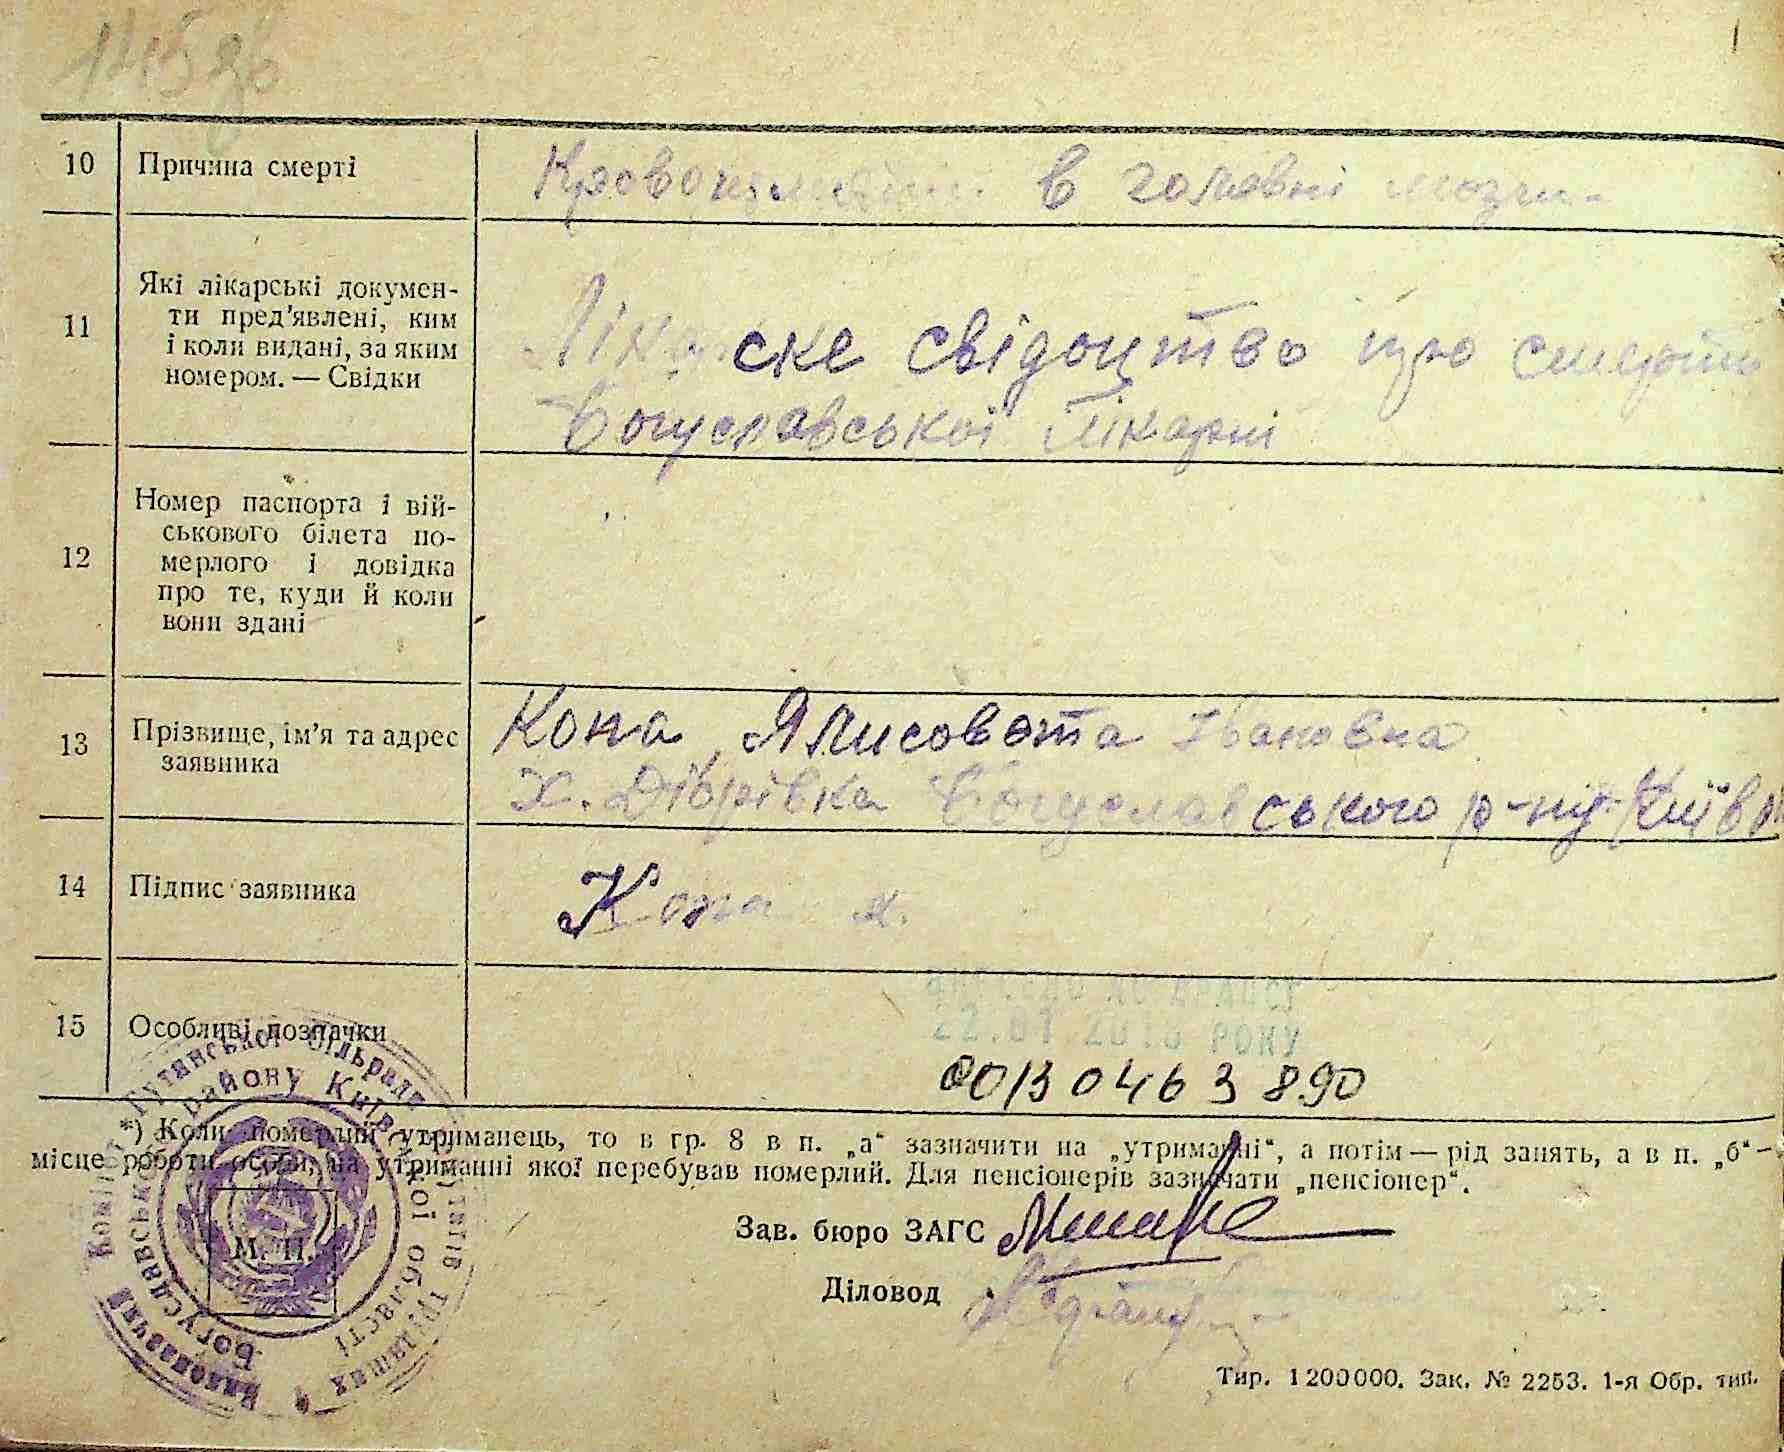 10 Причина смерті
в головні мозгу
11 Які лікарські докумен-
ти пред'явлені, ким
і коли видані, за яким
номером. — Свідки
Лікарске свідоцтво про смерть
Богуславської лікарні
12 Номер паспорта і вій-
ськового білета по-
мерлого і довідка
про те, куди й коли
вони здані
13 Прізвище, ім'я та адрес
заявника
Кона Ялисовета Івановна
х. Дібрівка Богуславського р-ну Київ
14 Підпис заявника
Кона Я.
15 Особливі позначки
РОКУ
00130463890
*) Коли померлий утриманець, то в гр. 8 в п. „а“ зазначити на „утриманні“, а потім — рід занять, а в п. „б“ —
місце роботи особи, на утриманні якої перебував померлий. Для пенсіонерів зазначати „пенсіонер“.
Зав. бюро ЗАГС
Діловод
М. П.
Тир. 1200000. Зак. № 2253. 1-я Обр. тип.